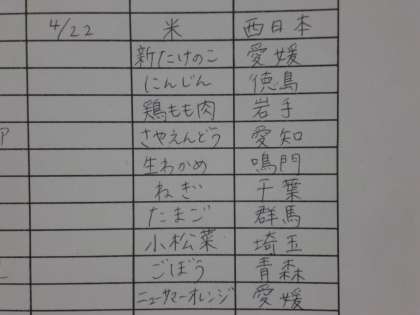 4/22 米 西日本
新たけのこ 愛媛
にんじん 徳島
鶏もも肉 岩手
さやえんどう 愛知
生わかめ 鳴門
ねぎ 千葉
たまご 群馬
小松菜 埼玉
ごぼう 青森
ニューサマーオレンジ 愛媛